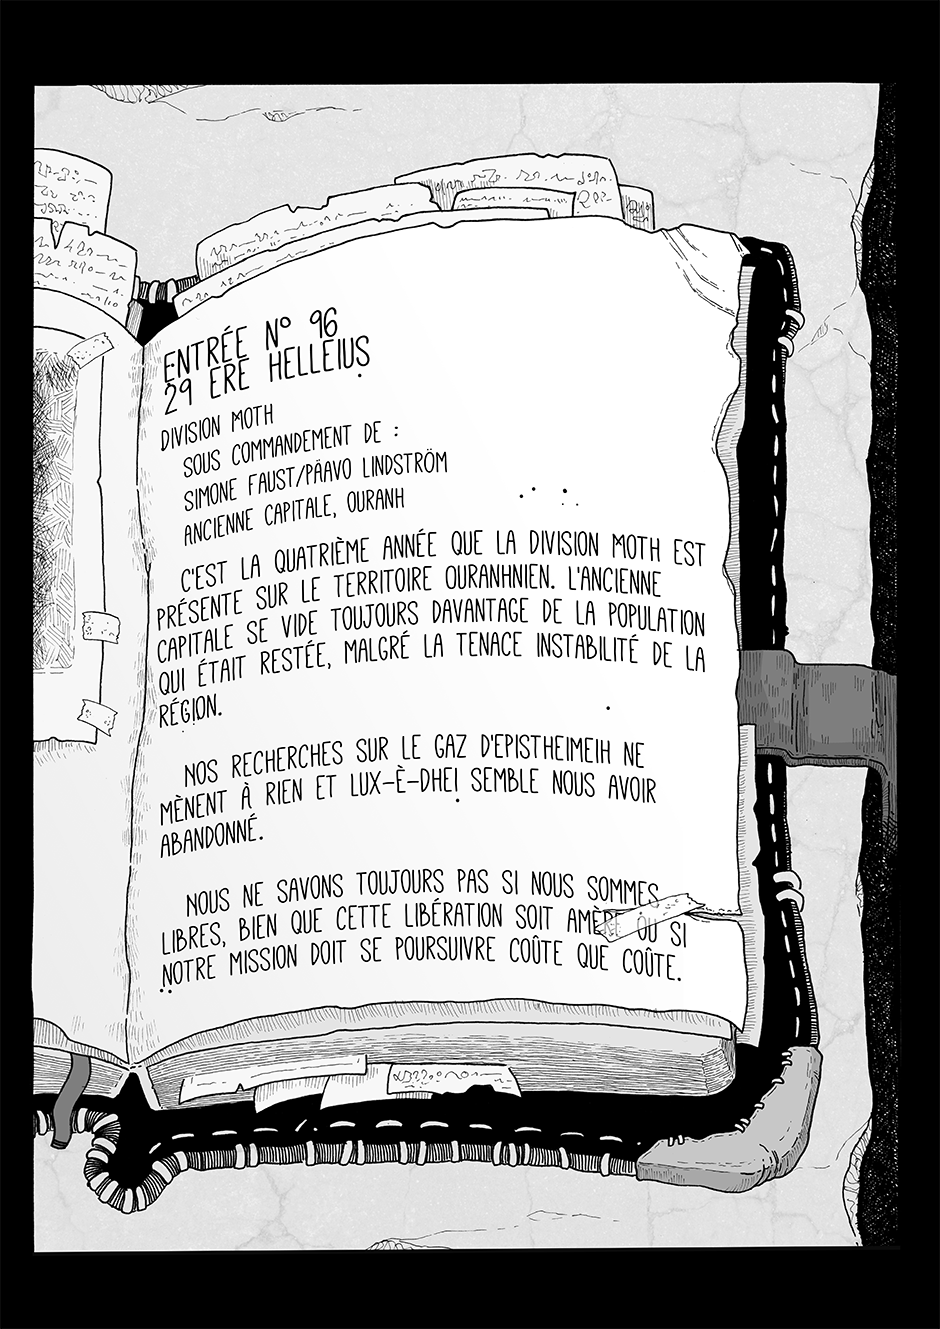 ENTRÉE N° 96
29 ERE HELLEIUS
DIVISION MOTH
SOUS COMMANDEMENT DE :
SIMONE FAUST/PÄAVO LINDSTRÖM
ANCIENNE CAPITALE, OURANH
C'EST LA QUATRIÈME ANNÉE QUE LA DIVISION MOTH EST
PRÉSENTE SUR LE TERRITOIRE OURANHNIEN. L'ANCIENNE
CAPITALE SE VIDE TOUJOURS DAVANTAGE DE LA POPULATION
QUI ÉTAIT RESTÉE, MALGRÉ LA TENACE INSTABILITÉ DE LA
RÉGION.
NOS RECHERCHES SUR LE GAZ D'EPISTHEIMEIH NE
MÈNENT À RIEN ET LUX-È-DHEI SEMBLE NOUS AVOIR
ABANDONNÉ.
NOUS NE SAVONS TOUJOURS PAS SI NOUS SOMMES
LIBRES, BIEN QUE CETTE LIBÉRATION SOIT AMÈRE OU SI
NOTRE MISSION DOIT SE POURSUIVRE COÛTE QUE COÛTE.